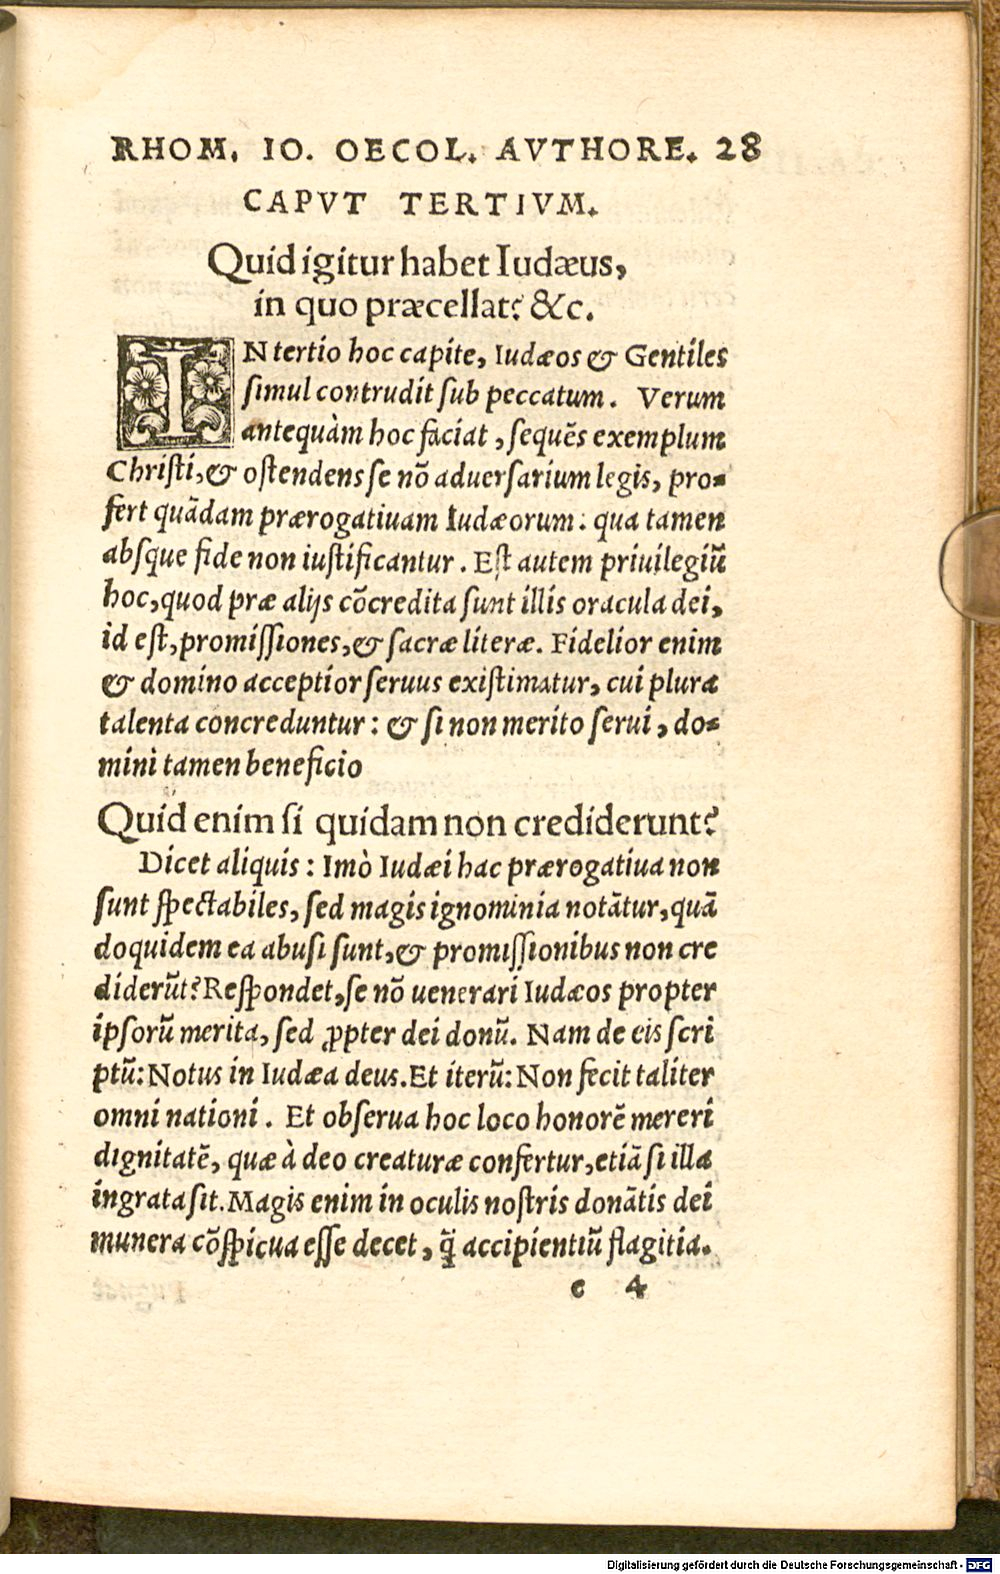 RHOM. IO. OECOL. AVTHORE. 28
CAPVT TERTIVM.
Quid igitur habet Iudæus,
in quo præcellat? &c.
IN tertio hoc capite, Iudæos & Gentiles
simul contrudit sub peccatum. Verum
antequàm hoc faciat, sequẽs exemplum
Christi, & ostendens se nõ aduersarium legis, pro-
fert quãdam prærogatiuam Iudæorum: qua tamen
absque fide non iustificantur. Est autem priuilegiũ
hoc, quod præ alijs cõcredita sunt illis oracula dei,
id est, promissiones, & sacræ literæ. Fidelior enim
& domino acceptior seruus existimatur, cui plura
talenta concreduntur: & si non merito serui, do-
mini tamen beneficio
Quid enim si quidam non crediderunt?
Dicet aliquis: Imò Iudæi hac prærogatiua non
sunt spectabiles, sed magis ignominia notãtur, quã
doquidem ea abusi sunt, & promissionibus non cre
diderũt? Respondet, se nõ uenerari Iudæos propter
ipsorũ merita, sed ꝓpter dei donũ. Nam de eis scri
ptũ: Notus in Iudæa deus. Et iterũ: Non fecit taliter
omni nationi. Et obserua hoc loco honorẽ mereri
dignitatẽ, quæ à deo creaturæ confertur, etiã si illa
ingrata sit. Magis enim in oculis nostris donãtis dei
munera cõspicua esse decet, q̃ accipientiũ flagitia.
c 4
Digitalisierung gefördert durch die Deutsche Forschungsgemeinschaft - DFG